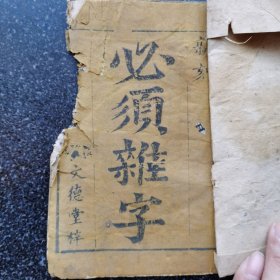 新刻
必須雜字
文德堂梓